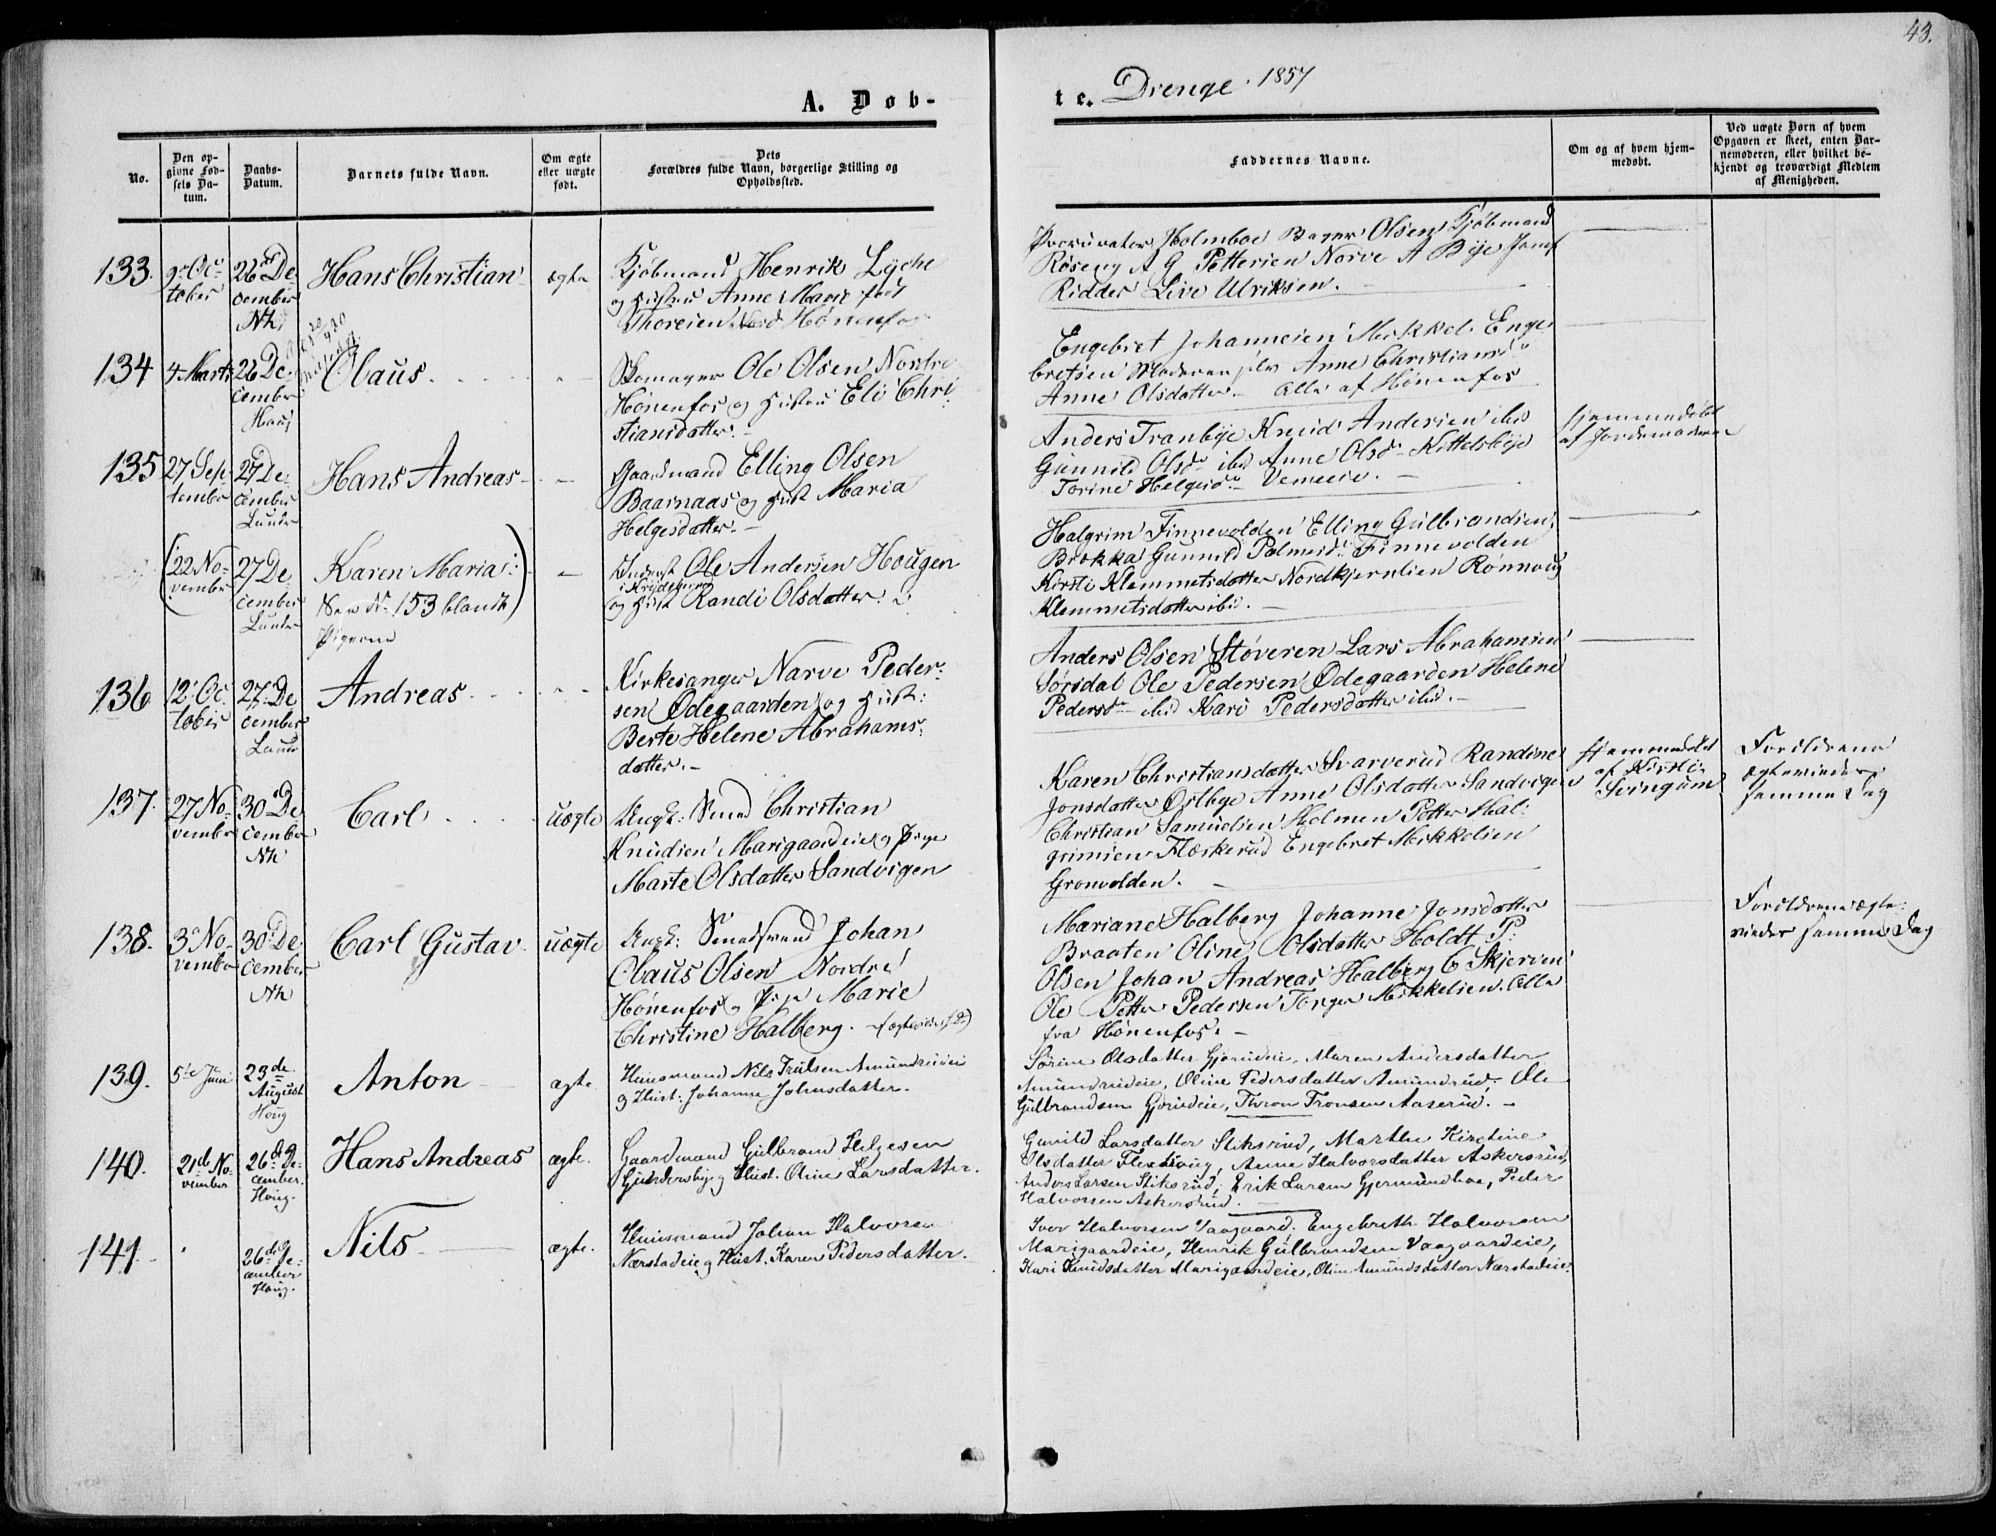 43.
A. Døb-
te. Drenge. 1857
No.
Den op-
givne Fød-
sels Da-
tum.
Daabs-
Datum.
Barnets fulde Navn.
Om ægte
eller uægte
født.
Dets
Forældres fulde Navn, borgerlige Stilling og
Opholdssted.
Faddernes Navne.
Om og af hvem hjem-
medøbt.
Ved uægte Børn af hvem
Opgaven er skeet, enten Bar-
nemoderen, eller hvilket be-
kjendt og troværdigt Medlem
af Menigheden.
133.
9 Oc-
tober
26 De
cember
Nh
Hans Christian
ægte
Kjøbmand Henrik Lyche
og Hustru Anne Marie født
Thoresen Nord Hønenfos
Procurator Holmboe Bager Olsen Kjøbmand
Røseng A G Pettersen Narve A Bye Jomf
Ridder Live Ulriksen.
134
4 Marts
26 De
cember
Houg
Olaus.
Skomager Ole Olsen Nordre
Hønenfos og Hustru Eli Chri
stiansdatter.
Engebret Johannesen Mikkel Enge
bretsen Moderen selv Anne Christiansd
Anne Olsdatter Alle af Hønenfos
135
27 Sep
tember
27 De
cember
Lunder
Hans Andreas
Gaardmand Elling Olsen
Baarnaas og Hust Maria
Helgesdatter.
Anders Tranbye Knud Andersen ibid
Gunnild Olsd ibid Anne Olsd Kittelsbye
Torine Helgesd Vemeie.
Hjemmedøbt
af Jordemoderen
(22 No-
vember
27 De
cember
Lunder
Karen Maria:
See No 153 blandt)
Pigerne
Inderst Ole Andersen Hougen
og Hust Randi Olsdatter.
Halgrim Finnevolden Elling Gulbrandsen
Brekka Gunnild Palmesd Finnevolden
Kirsti Klemmetsdatter Nordkjernlien Ronnoug
Klemmetsdatter ibid.
136
12 Oc
tober
27 De
cember
Lunder
Andreas
Kirkesanger Narve Peder-
sen Ødegaarden og Hust:
Berte Helene Abrahams-
datter.
Anders Olsen Støveren Lars Abrahamsen
Sørsdal Ole Pedersen Ødegaarden Helene
Pedersd ibid Kari Pedersdatter ibid.
137.
27 No
vember
30 De
cember
Nh
Carl
uægte
Ungk: Smed Christian
Knudsen Marigaardeie og Pige
Marte Olsdatter Sandvigen
Karen Christiansdatter Svarverud Randine
Jonsdatter Østbye Anne Olsdatter Sandvigen
Christian Samuelsen Holmen Petter Hal-
grimsen Flæskerud Engebret Mikkelsen
Gronvolden.
Hjemmedøbt
af Kirsti
Svingum
Forældrene
ægteviede
samme Dag
138.
3 No-
vember
30 De
cember
Nh
Carl Gustav
uægte
Ungk: Smedsvend Johan
Olaus Olsen Nordre
Hønenfos og Pige Marie
Christine Halberg.
Mariane Halberg Johanne Jonsdatter
Braaten Oline Olsdatter Holdt P:
Olsen Johan Andreas Halberg C Skjerven
Ole Petter Pedersen Torger Mikkelsen. Alle
fra Hønenfos.
Forældrene ægte-
viede samme Dag
139.
5te Juni
23de
August
Houg
Anton
ægte
Huusmand Nils Trulsen Amundrudeie
og Hust: Johanne Johnsdatter.
Sørine Olsdatter Gjørudeie, Maren Andersdatter
Amundrudeie, Oline Pedersdatter Amundrud, Ole
Gulbrandsen Gjørudeie, Thron Tronsen Aaserud.
140.
21de No-
vember
26de De-
cember.
Houg.
Hans Andreas
ægte.
Gaardmand Gulbrand Helgesen
Gunderbye og Hust. Oline Larsdatter.
Gunild Larsdatter Stiksrud, Marthe Kirstine
Olsdatter, Anne Halvorsdatter Askersrud,
Anders Larsen Stiksrud, Erik Larsen Gjermundboe, Peder
Halvorsen Askersrud.
141.
26de De-
cember
Houg.
Nils
ægte.
Huusmand Johan Halvorsen
Nærstadeie og Hust. Karen Pedersdatter.
Iver Halvorsen Vaagaard. Engebreth Halvorsen
Marigaardeie, Henrik Gulbrandsen Vaagaardeie,
Kari Knudsdatter Marigaardeie, Oline Amundsdatter Nærstadeie.